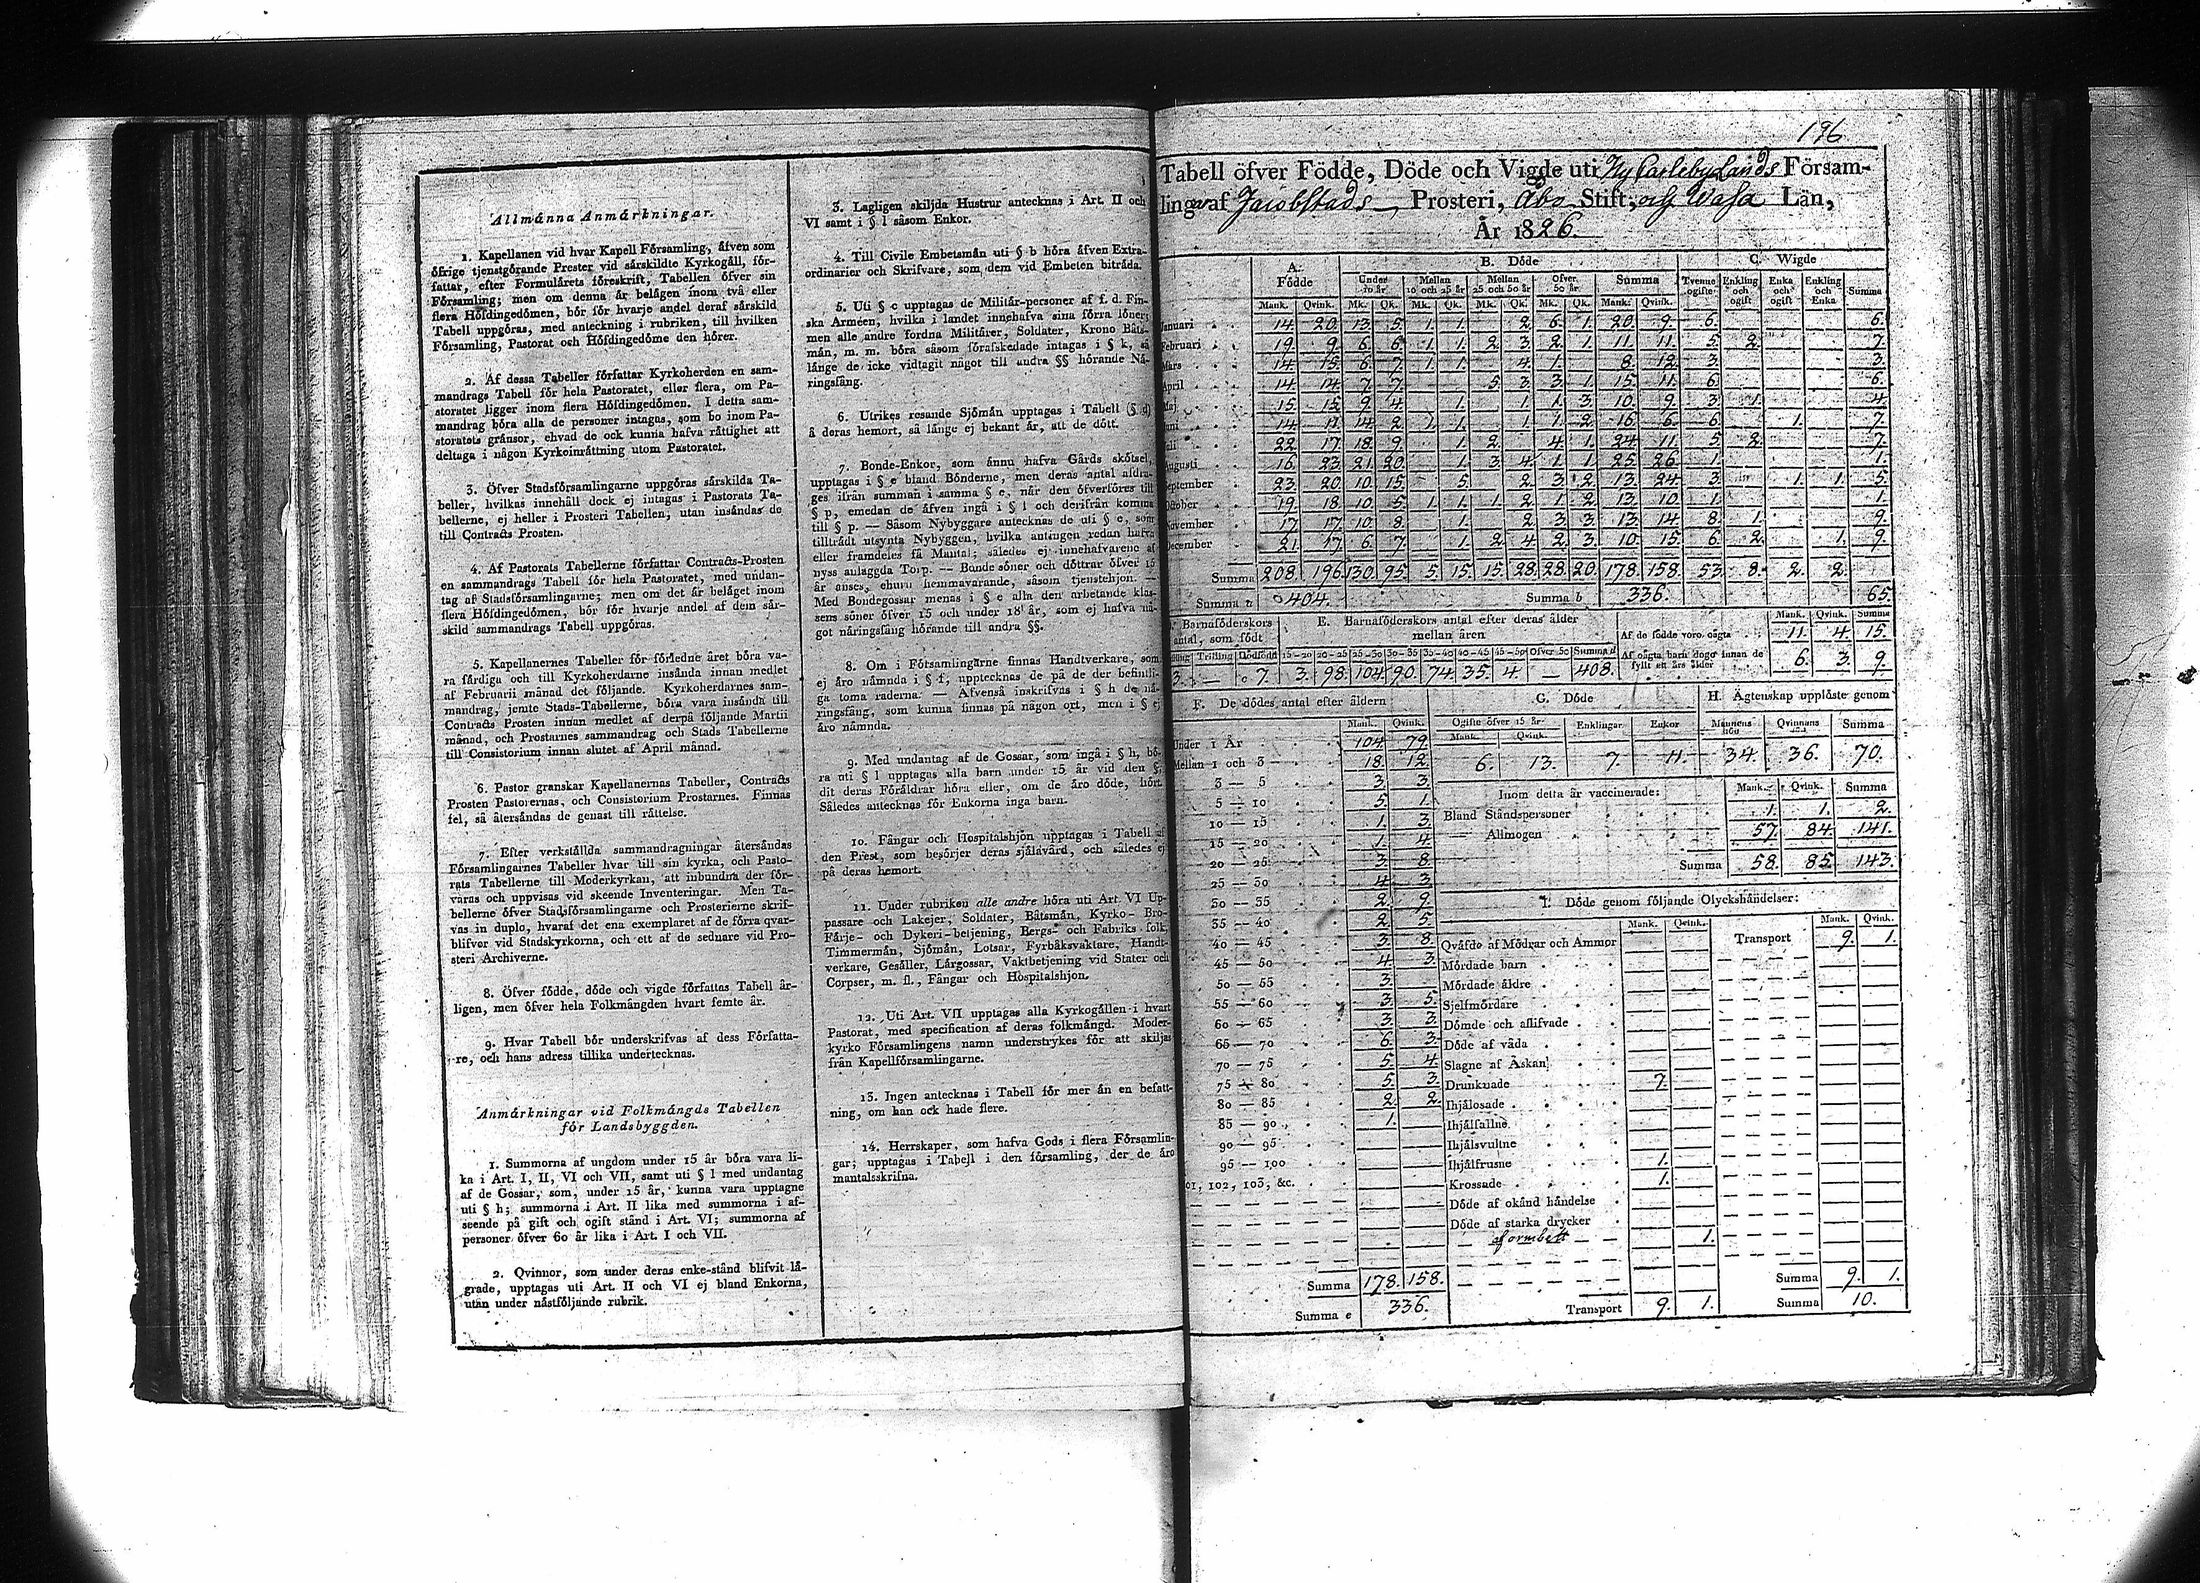 Allmánna Anmárkningar.
1. Kapellanen vid hvar Kapell Fórsamling, áfven som
öfrige tjenstgórande Prester vid sárskildte Kyrkogáll, fór-
fattar, efter Formulárets fóreskrift, Tabellen ófver sin
Fórsamling; men om denna ár belágen inom två eller
flera Hófdingedómen, bór fór hvarje andel deraf sárskild
Tabell uppgóras, med anteckning i rubriken, till hvilken
Fórsamling, Pastorat och Hófdingedóme den hórer.
2. Af dessa Tabeller fórfattar Kyrkoherden en sam-
mandrags Tabell fór hela Pastoratet, eller flera, om Pa-
storatet ligger inom flera Hófdingedómen. I detta sam-
mandrag bóra alla de personer intagas, som bo inom Pa-
storatets gránsor, ehvad de ock kunna hafva råttighet att
deltaga i någon Kyrkoinråttning utom Pastoratet.
3. Öfver Stadsfórsamlingarne uppgóras sárskilda Ta-
beller, hvilkas innehåll dock ej intagas i Pastorats Ta-
bellerne, ej heller i Prosteri Tabellen, utan insándas de
till Contracts Prosten.
4. Af Pastorats Tabellerne fórfattar Contracts-Prosten
en sammandrags Tabell fór hela Pastoratet, med undan-
tag af Stadsfórsamlingarne; men om det ár belåget inom
flera Hófdingedómen, bór fór hvarje andel af dem sár-
skild sammandrags Tabell uppgóras.
5. Kapellanernes Tabeller fór fórledne året bóra va-
ra fårdiga och till Kyrkoherdarne insánda innan medlet
af Februarii månad det fóljande. Kyrkoherdarnes sam-
mandrag, jemte Stads-Tabellerne, bóra vara insánda till
Contracts Prosten innan medlet af derpå fóljande Martii
månad, och Prostarnes sammandrag och Stads Tabellerne
till Consistorium innan slutet af April månad.
6. Pastor granskar Kapellanernes Tabeller, Contracts
Prosten Pastorernas, och Consistorium Prostarnes. Finnas
fel, så återsándas de genast till råttelse.
7. Efter verkstållda sammandragningar återsándas
Fórsamlingarnes Tabeller hvar till sin kyrka, och Pasto-
rats Tabellerne till Moderkyrkan, att inbundna der fór-
varas och uppvisas vid skeende Inventeringar. Men Ta-
bellerne ófver Stadsfórsamlingarne och Prosterierne skrif-
vas in duplo, hvaraf det ena exemplaret af de fórra qvar-
blifver vid Stadskyrkorna, och ett af de sednare vid Pro-
steri Archiverne.
8. Öfver fódde, dóde och vigde fórfattas Tabell år-
ligen, men ófver hela Folkmångden hvart femte år.
9. Hvar Tabell bór underskrifvas af dess Fórfatta-
re, och hans adress tillika undertecknas.
Anmárkningar vid Folkmángds Tabellen
fór Landsbyggden.
1. Summorna af ungdom under 15 år bóra vara li-
ka i Art. I, II, VI och VII, samt uti § l med undantag
af de Gossar, som, under 15 år, kunna vara upptagne
uti § h; summorna i Art. II lika med summorna i af-
seende på gift och ogift stånd i Art. VI; summorna af
personer ófver 60 år lika i Art. I och VII.
2. Qvinnor, som under deras enke-stånd blifvit lå-
grade, upptagas uti Art. II och VI ej bland Enkorna,
utan under nåstfóljande rubrik.
3. Lagligen skiljda Hustrur antecknas i Art. II och
VI samt i § l såsom Enkor.
4. Till Civile Embetsmån uti § b hóra áfven Extra-
ordinarier och Skrifvare, som dem vid Embeten bitråda.
5. Uti § c upptagas de Militår-personer af f. d. Fin-
ska Arméen, hvilka i landet innehafva sina fórra lóner;
men alle andre fordna Militårer, Soldater, Krono Båts-
mån, m. m. bóra såsom fórafskedade intagas i § k, så
långe de icke vidtagit något till andra §§ hórande Nå-
ringsfång.
6. Utrikes resande Sjómån upptagas i Tabell (§ d)
å deras hemort, så långe ej bekant år, att de dótt.
7. Bonde-Enkor, som ånnu hafva Gårds skótsel,
upptagas i § e bland Bónderne, men deras antal afdra-
ges ifrån summan i samma § e, når den ófverfóres till
§ p, emedan de åfven ingå i § l och derifrån komma
till § p. — Såsom Nybyggare antecknas de uti § e, som
tilltrådt utsynta Nybyggen, hvilka antingen redan hafva
eller framdeles få Mantal; således ej innehafvarene af
nyss anlaggda Torp. — Bonde sóner och dóttrar ófver 15
år anses, ehuru hemmavarande, såsom tjenstehjon. —
Med Bondegossar menas i § e alla den arbetande klas-
sens sóner ófver 15 och under 18 år, som ej hafva nå-
got nåringsfång hórande till andra §§.
8. Om i Fórsamlingarne finnas Handtverkare, som
ej åro nåmnda i § f, upptecknas de på de der befintli-
ga toma raderna. — Afvenså inskrifvas i § h de nå-
ringsfång, som kunna finnas på någon ort, men i § ej
åro nåmnda.
9. Med undantag af de Gossar, som ingå i § h, bó-
ra uti § l upptagas alla barn under 15 år vid den §,
dit deras Fóråldrar hóra eller, om de åro dóde, hórt.
Således antecknas fór Enkorna inga barn.
10. Fångar och Hospitalshjon upptagas i Tabell af
den Prest, som besórjer deras sjålavård, och således ej
på deras hemort.
11. Under rubriken alle andre hóra uti Art. VI Up-
passare och Lakejer, Soldater, Båtsmån, Kyrko- Bro-
Fårje- och Dykeri-betjening, Bergs- och Fabriks folk,
Timmermån, Sjómån, Lotsar, Fyrbåksvaktare, Handt-
verkare, Gesåller, Lårgossar, Vaktbetjening vid Stater och
Corpser, m. fl., Fångar och Hospitalshjon.
12. Uti Art. VII upptagas alla Kyrkogållen i hvart
Pastorat, med specification af deras folkmångd. Moder-
kyrko Fórsamlingens namn understrykes fór att skiljas
från Kapellfórsamlingarne.
13. Ingen antecknas i Tabell fór mer ån en befatt-
ning, om han ock hade flere.
14. Herrskaper, som hafva Gods i flera Fórsamlin-
gar, upptagas i Tabell i den fórsamling, der de åro
mantalsskrifna.
196
Tabell öfver Födde, Döde och Vigde uti Ny Carleby Lands Försam-
ling af Jacobstads Prosteri, Åbo Stift, och Wasa Län,
År 1826.
A. Födde B. Döde C. Wigde
Under 10 år. Mellan 10 och 25 år Mellan 25 och 50 år Öfver 50 år. Summa Tvenne ogifte Enkling och ogift Enka och ogift Enkling och Enka Summa
Mank. Qvink. Mk. Qk. Mk. Qk. Mk. Qk. Mk. Qk. Mank. Qvink.
Januari 14. 20. 13. 5. 1. 1. 2. 6. 1. 20. 9. 6. 6.
Februari 19. 9. 6. 6. 1. 1. 2. 3. 2. 1. 11. 11. 5. 2. 7.
Mars 14. 15. 6. 7. 1. 1. 4. 1. 8. 12. 3. 3.
April 14. 14. 7. 7. 5. 3. 3. 1. 15. 11. 6. 6.
Maj 15. 15. 9. 4. 1. 1. 1. 3. 10. 9. 3. 1. 4.
Juni 14. 11. 14. 2. 1. 1. 1. 1. 2. 16. 6. 6. 1. 7.
Juli 22. 17. 18. 9. 1. 2. 4. 1. 24. 11. 5. 2. 7.
Augusti 16. 23. 21. 20. 1. 3. 4. 1. 1. 25. 26. 1. 1.
September 23. 20. 10. 15. 5. 2. 3. 2. 13. 24. 3. 1. 1. 5.
October 19. 18. 10. 5. 1. 1. 1. 2. 1. 2. 13. 10. 1. 1.
November 17. 17. 10. 8. 1. 2. 3. 3. 13. 14. 8. 1. 9.
December 21. 17. 6. 7. 1. 2. 4. 2. 3. 10. 15. 6. 2. 1. 9.
Summa 208. 196. 130. 95. 5. 15. 15. 28. 28. 20. 178. 158. 53. 8. 2. 2.
Summa a 404. Summa b 336. 65.
Barnaföderskors antal, som födt
Tvilling Trilling Dödfödt
3. — 7.
E. Barnaföderskors antal efter deras ålder mellan åren
15-20 20-25 25-30 30-35 35-40 40-45 45-50 Öfver 50 Summa d
3. 98. 104. 90. 74. 35. 4. — 408.
Mank. Qvink. Summa
Af de födde voro oägta 11. 4. 15.
Af oägta barn dogo innan de fyllt ett års ålder 6. 3. 9.
F. De dödes antal efter åldern
Mank. Qvink.
Under 1 År 104 79.
Mellan 1 och 3 18. 12.
3 — 5 3. 3.
5 — 10 5. 1.
10 — 15 1. 3.
15 — 20 1. 4.
20 — 25 3. 8.
25 — 30 4. 3.
30 — 35 2. 9.
35 — 40 2. 5.
40 — 45 3. 8.
45 — 50 4. 3.
50 — 55 3.
55 — 60 3. 5.
60 — 65 3. 3.
65 — 70 6. 3.
70 — 75 5. 4.
75 — 80 5. 3.
80 — 85 2. 2.
85 — 90 1.
90 — 95
95 — 100
101, 102, 103, &c.
Summa 178. 158.
Summa e 336.
G. Döde
Ogifte öfver 15 år Enklingar Enkor
Mank. Qvink.
6. 13. 7. 11.
H. Ägtenskap upplöste genom
Mannens död Qvinnans död Summa
34. 36. 70.
Inom detta år vaccinerade: Mank. Qvink. Summa
Bland Ståndspersoner 1. 1. 2.
— Allmogen 57. 84. 141.
Summa 58. 85. 143.
I. Döde genom följande Olyckshändelser:
Mank. Qvink. Mank. Qvink.
Qväfde af Mödrar och Ammor Transport 9. 1.
Mördade barn
Mördade äldre
Sjelfmördare
Dömde och aflifvade
Döde af våda
Slagne af Åskan
Drunknade 7.
Ihjälosade
Ihjälfallne
Ihjälsvultne
Ihjälfrusne 1.
Krossade 1.
Döde af okänd händelse
Döde af starka drycker
af ormbett 1.
Summa 9. 1.
Transport 9. 1. Summa 10.